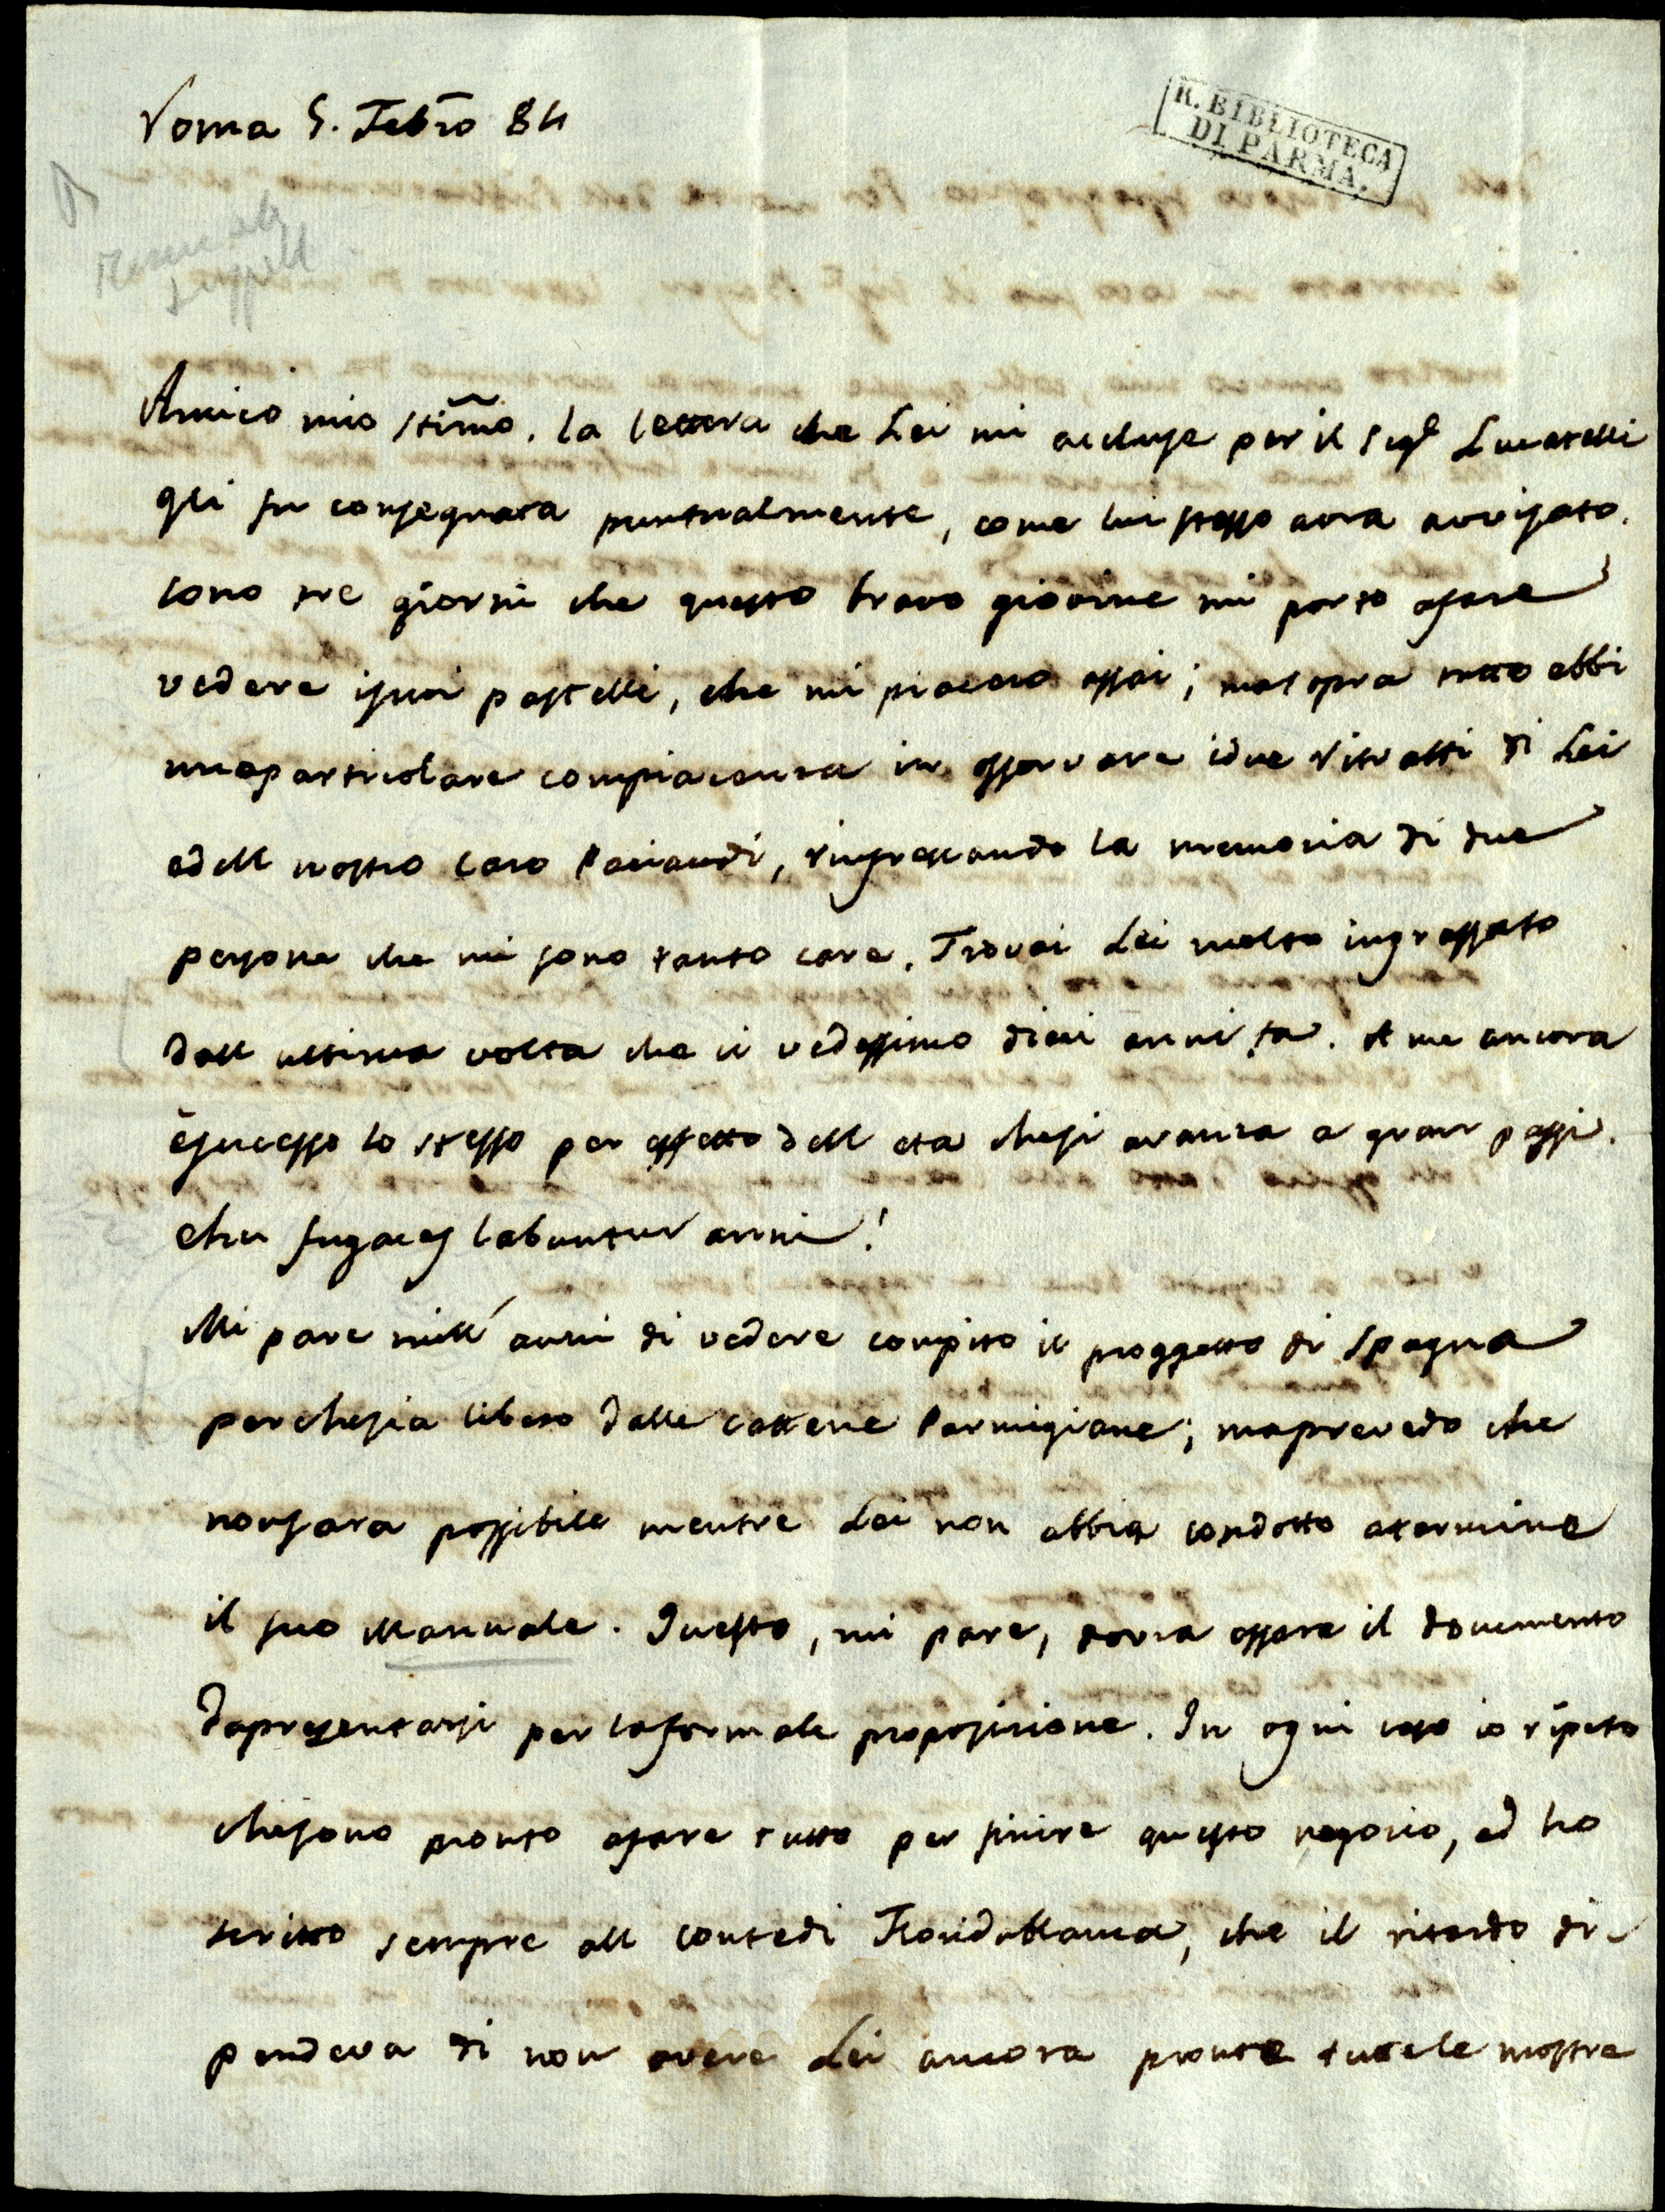 Roma 5. Febro 84
R. BIBLIOTECA
DI PARMA.
Amico mio stimo. la lettera che Lei mi accluse per il Sigr Lucatelli
gli fu consegnata puntualmente, come lui stesso avra avvisato.
sono tre giorni che questo bravo giovine mi porto afare
vedere isuoi pastelli, che mi piacero assai; masopra tutto ebbi
unaparticolare compiacenza in osservare idue Ritratti di Lei
edell nostro caro Paciaudi, rinfrescando la memoria di due
persone che mi sono tanto care. Trovai Lei molto ingrassato
dall ultima volta che ci vedessimo dieci anni fa. A me ancora
èsucesso lo stesso per effetto dell eta chesi avanza a gran passi.
eheu fugaces labuntur anni!
Mi pare mill' anni di vedere compito il proggetto di Spagna
perchesia libero dalle cattene Parmigiane; maprevedo che
nonsara possibile mentre Lei non abbia condotto atermine
il suo Manuale. Questo, mi pare, dovra essere il documento
dapresentarsi per laformale proposizione. In ogni caso io ripeto
chesono pronto afare tutto per finire questo negozio, ed ho
scritto sempre all Contedi Floridablanca, che il ritardo di-
pendeva di non avere Lei ancora pronte tutele mostre